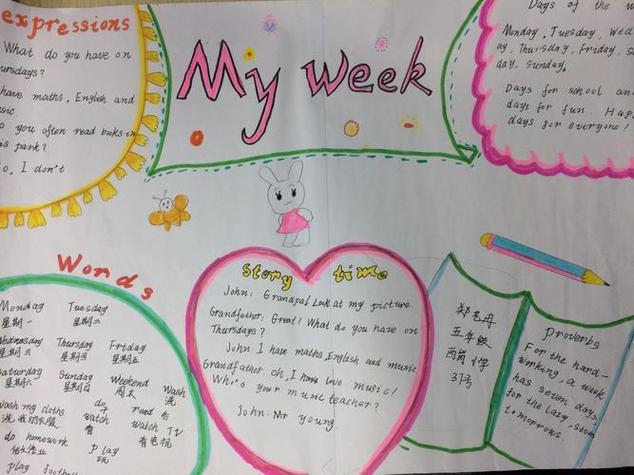 expressions
What do you have on
ursdays?
have maths, English and
sic
o you often read buks in
is park?
o, I don't
My week
Days of the w
Monday, Tuesday, Wed
ay, Thursday, Friday, S
day, Sunday.
Days for school an
days for fun. Hap
days for everyone!
Words
Monday Tuesday
星期一 星期二
Wednesday Thursday Friday
星期三 星期四 星期五
Saturday Sunday Weekend Wash
星期六 星期日 周末 洗
wash my cloths do read
洗我的衣服 watch 看
看 watch TV
看电视
do homework play
做作业 玩
play football
story time
John: Grandpa! Look at my picture
Grandfather: Great! What do you have on
Thursdays?
John: I have maths, English and music
Grandfather: oh, I have love music!
Who's your music teacher?
John: Mr young.
五年级
小学
37号
proverbs
For the hard-
working, a week
has seven days,
for the lazy, seven
tomorrows.